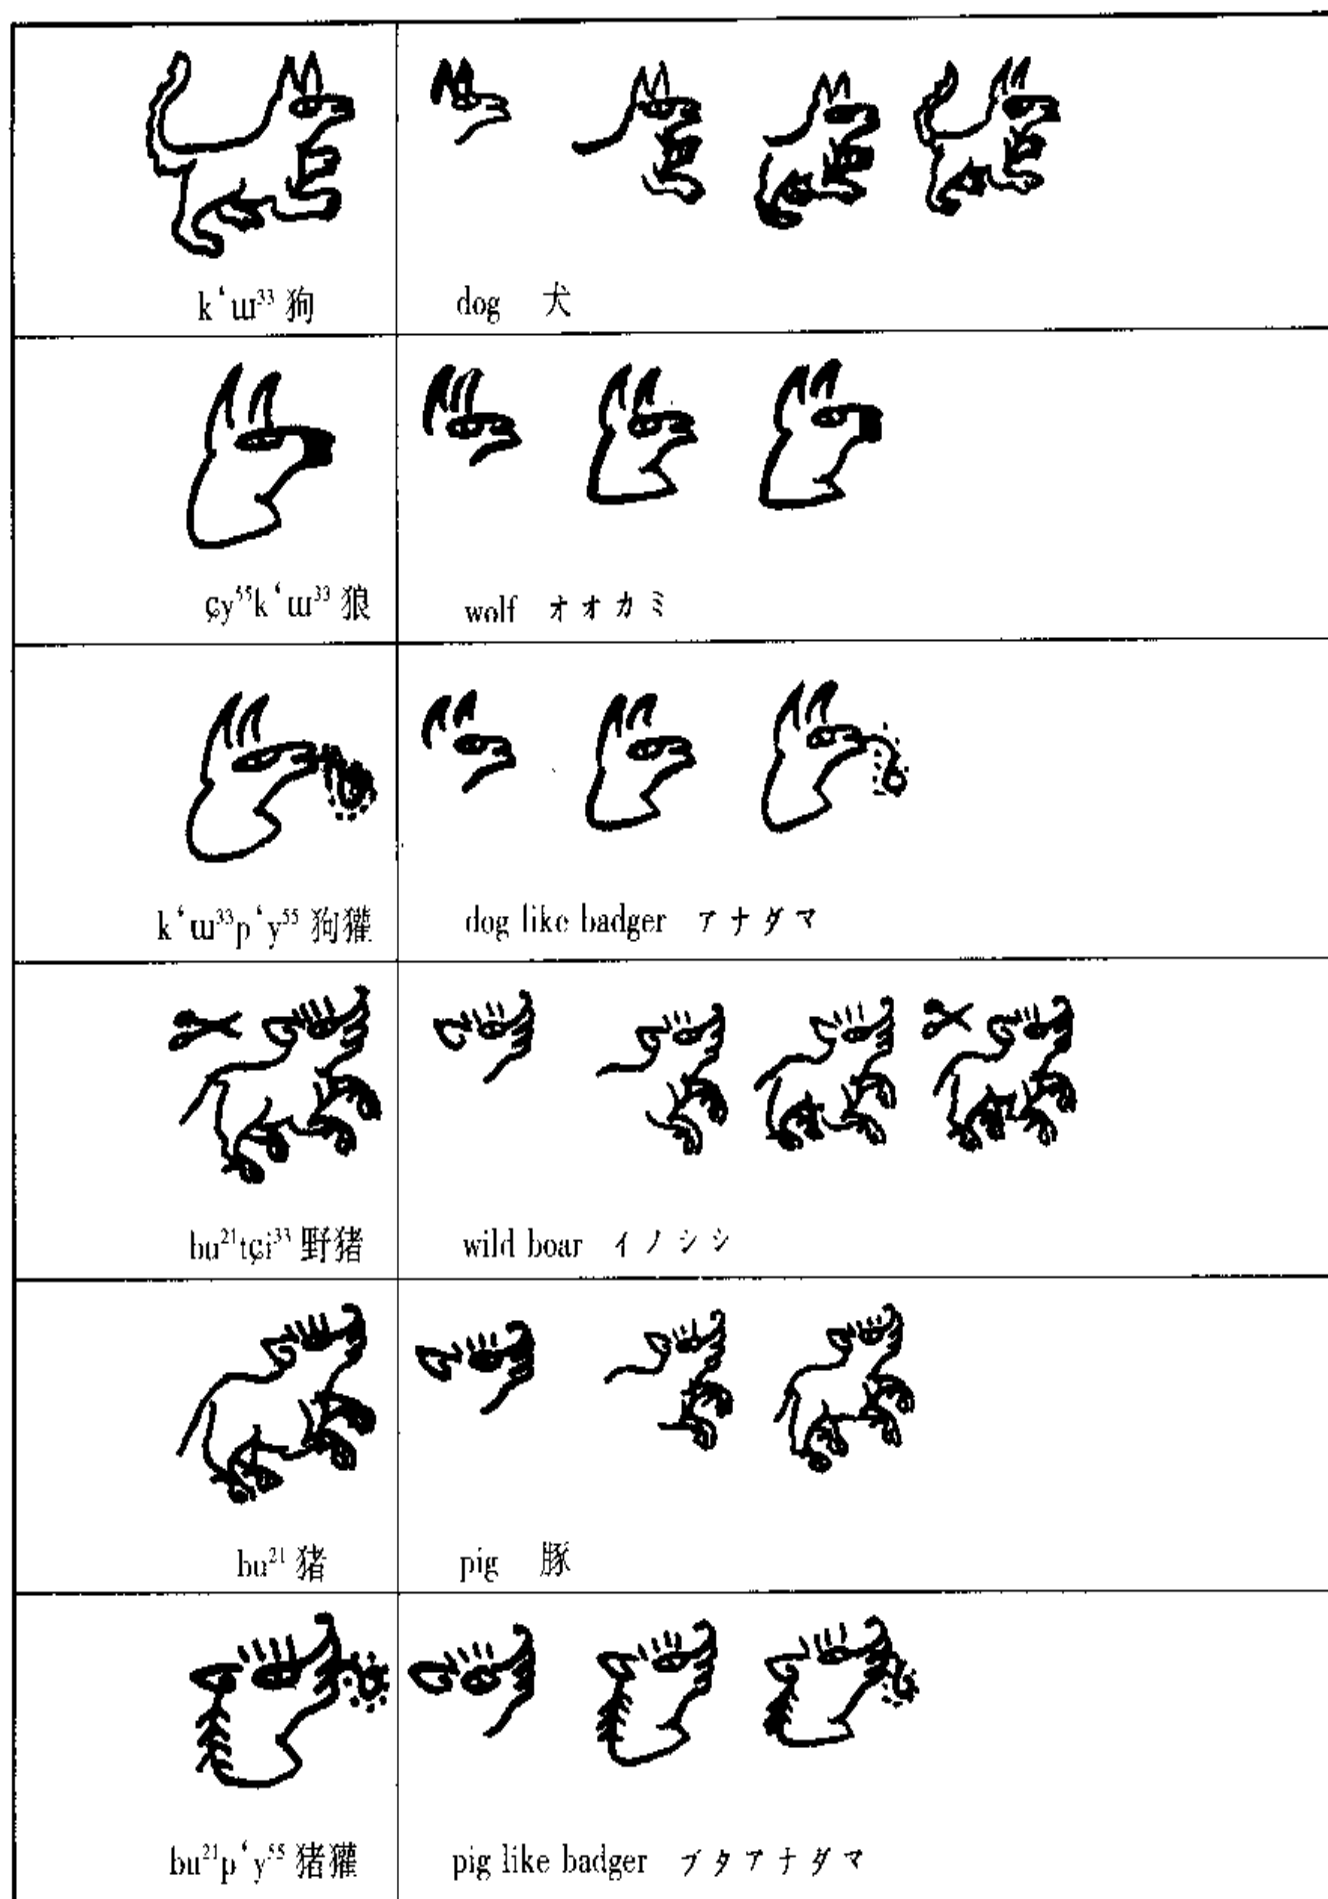 k‘ɯ³³ 狗
dog 犬
çy⁵⁵k‘ɯ³³ 狼
wolf オオカミ
k‘ɯ³³p‘y⁵⁵ 狗獾
dog like badger アナダマ
bu²¹tçi³³ 野猪
wild boar イノシシ
bu²¹ 猪
pig 豚
bu²¹p‘y⁵⁵ 猪獾
pig like badger ブタアナダマ